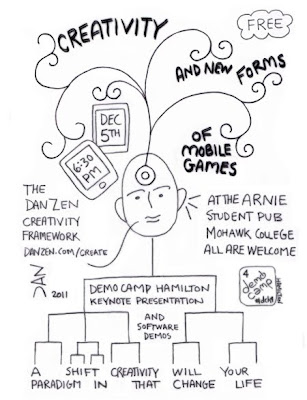 FREE
CREATIVITY
AND NEW FORMS
OF MOBILE
GAMES
DEC
5TH
6:30
PM
THE
DANZEN
CREATIVITY
FRAMEWORK
DANZEN.COM/CREATE
AT THE ARNIE
STUDENT PUB
MOHAWK COLLEGE
ALL ARE WELCOME
DAN
2011
DEMO CAMP HAMILTON
KEYNOTE PRESENTATION
AND
SOFTWARE
DEMOS
4
demo
camp
A SHIFT CREATIVITY WILL YOUR
PARADIGM IN THAT CHANGE LIFE